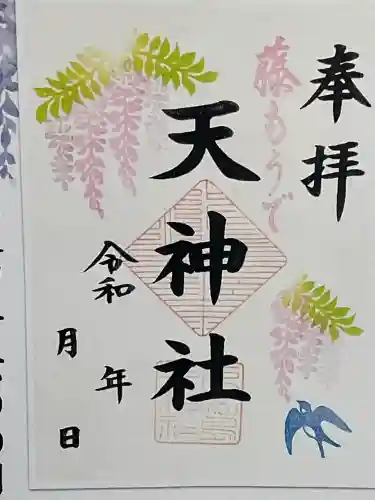 奉拝
藤もうで
天神社
令和
年
月
日